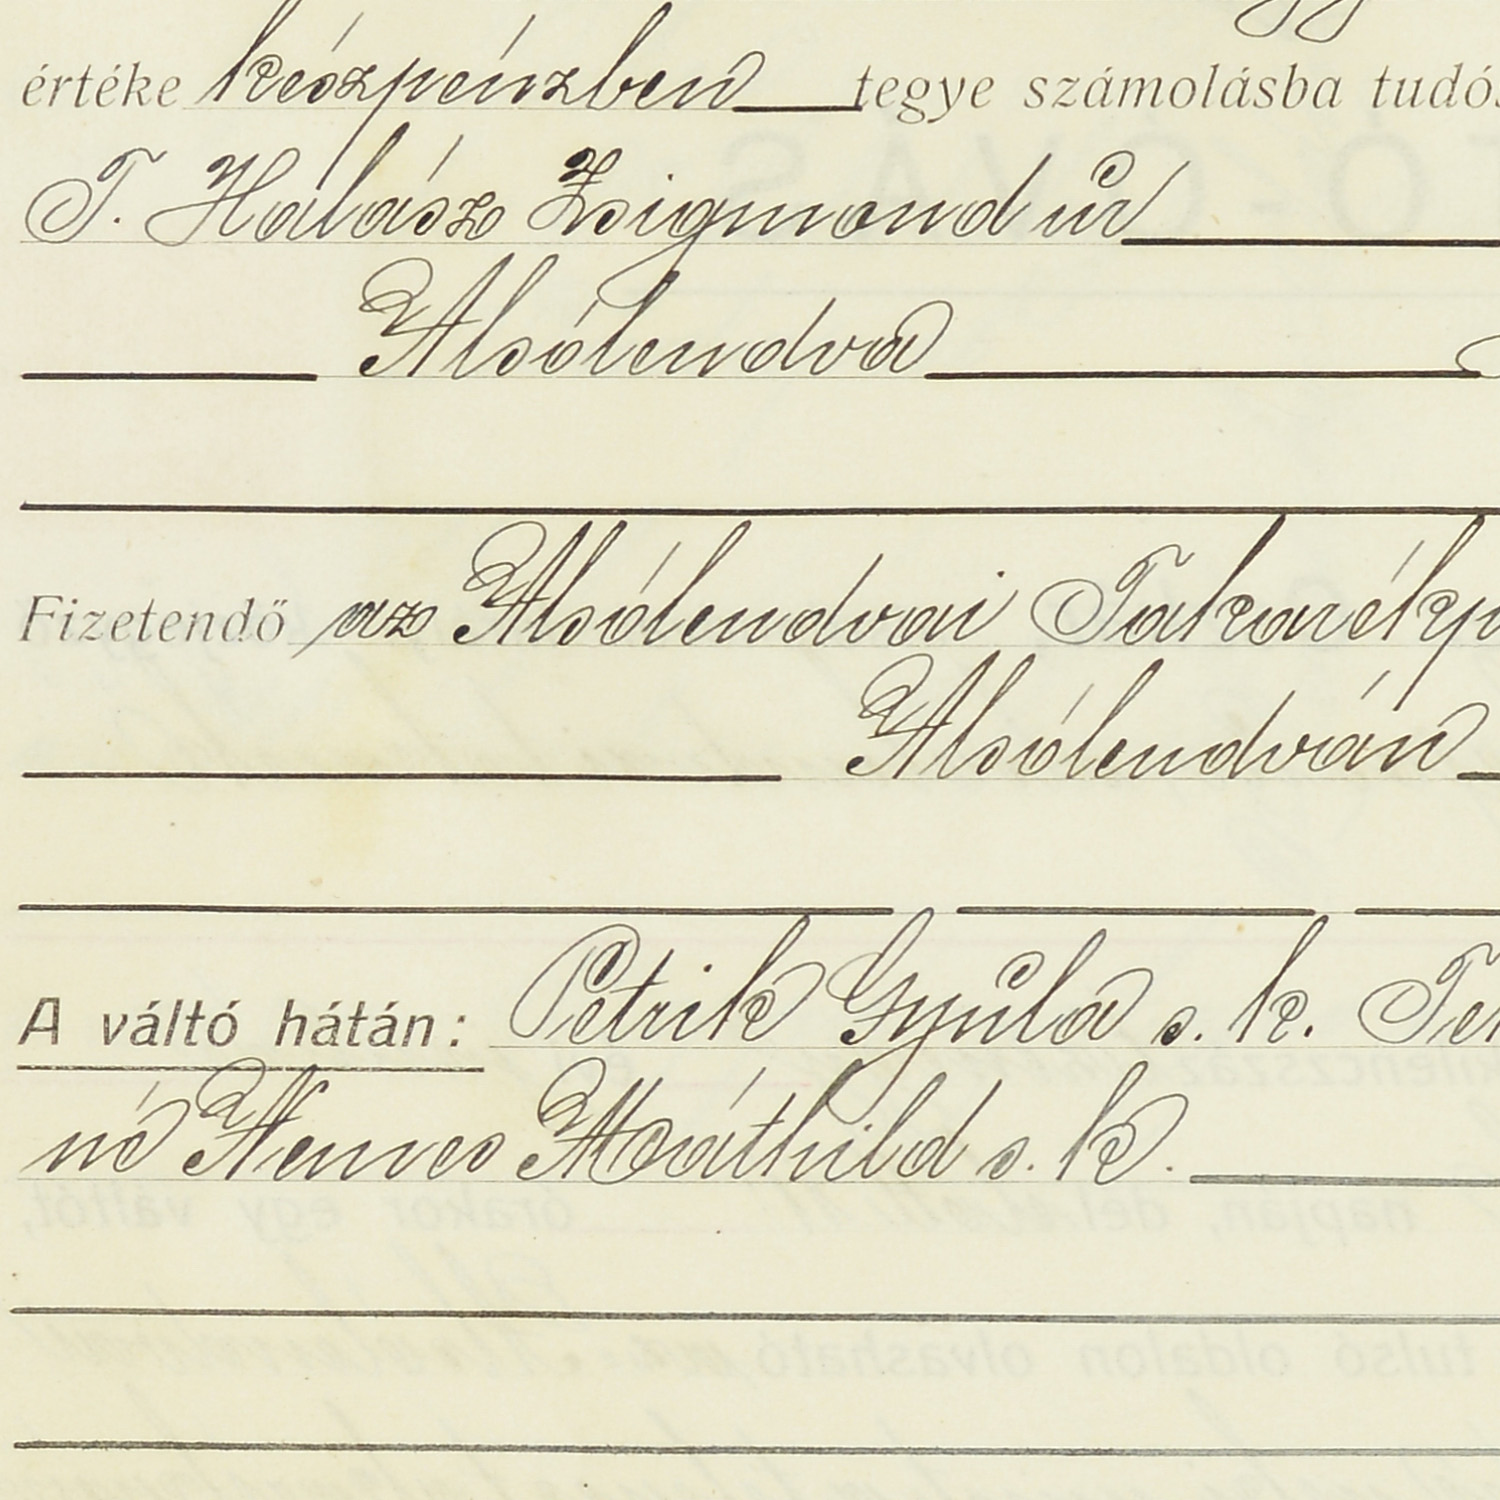 értéke készpénzben tegye számolásba tudós
T. Halász Zsigmond úr
Alsólendva
Fizetendő az Alsólendvai Takarékp
Alsólendván
A váltó hátán: Petrik Gyula s. k. Pet
né Nemes Máthild s. k.